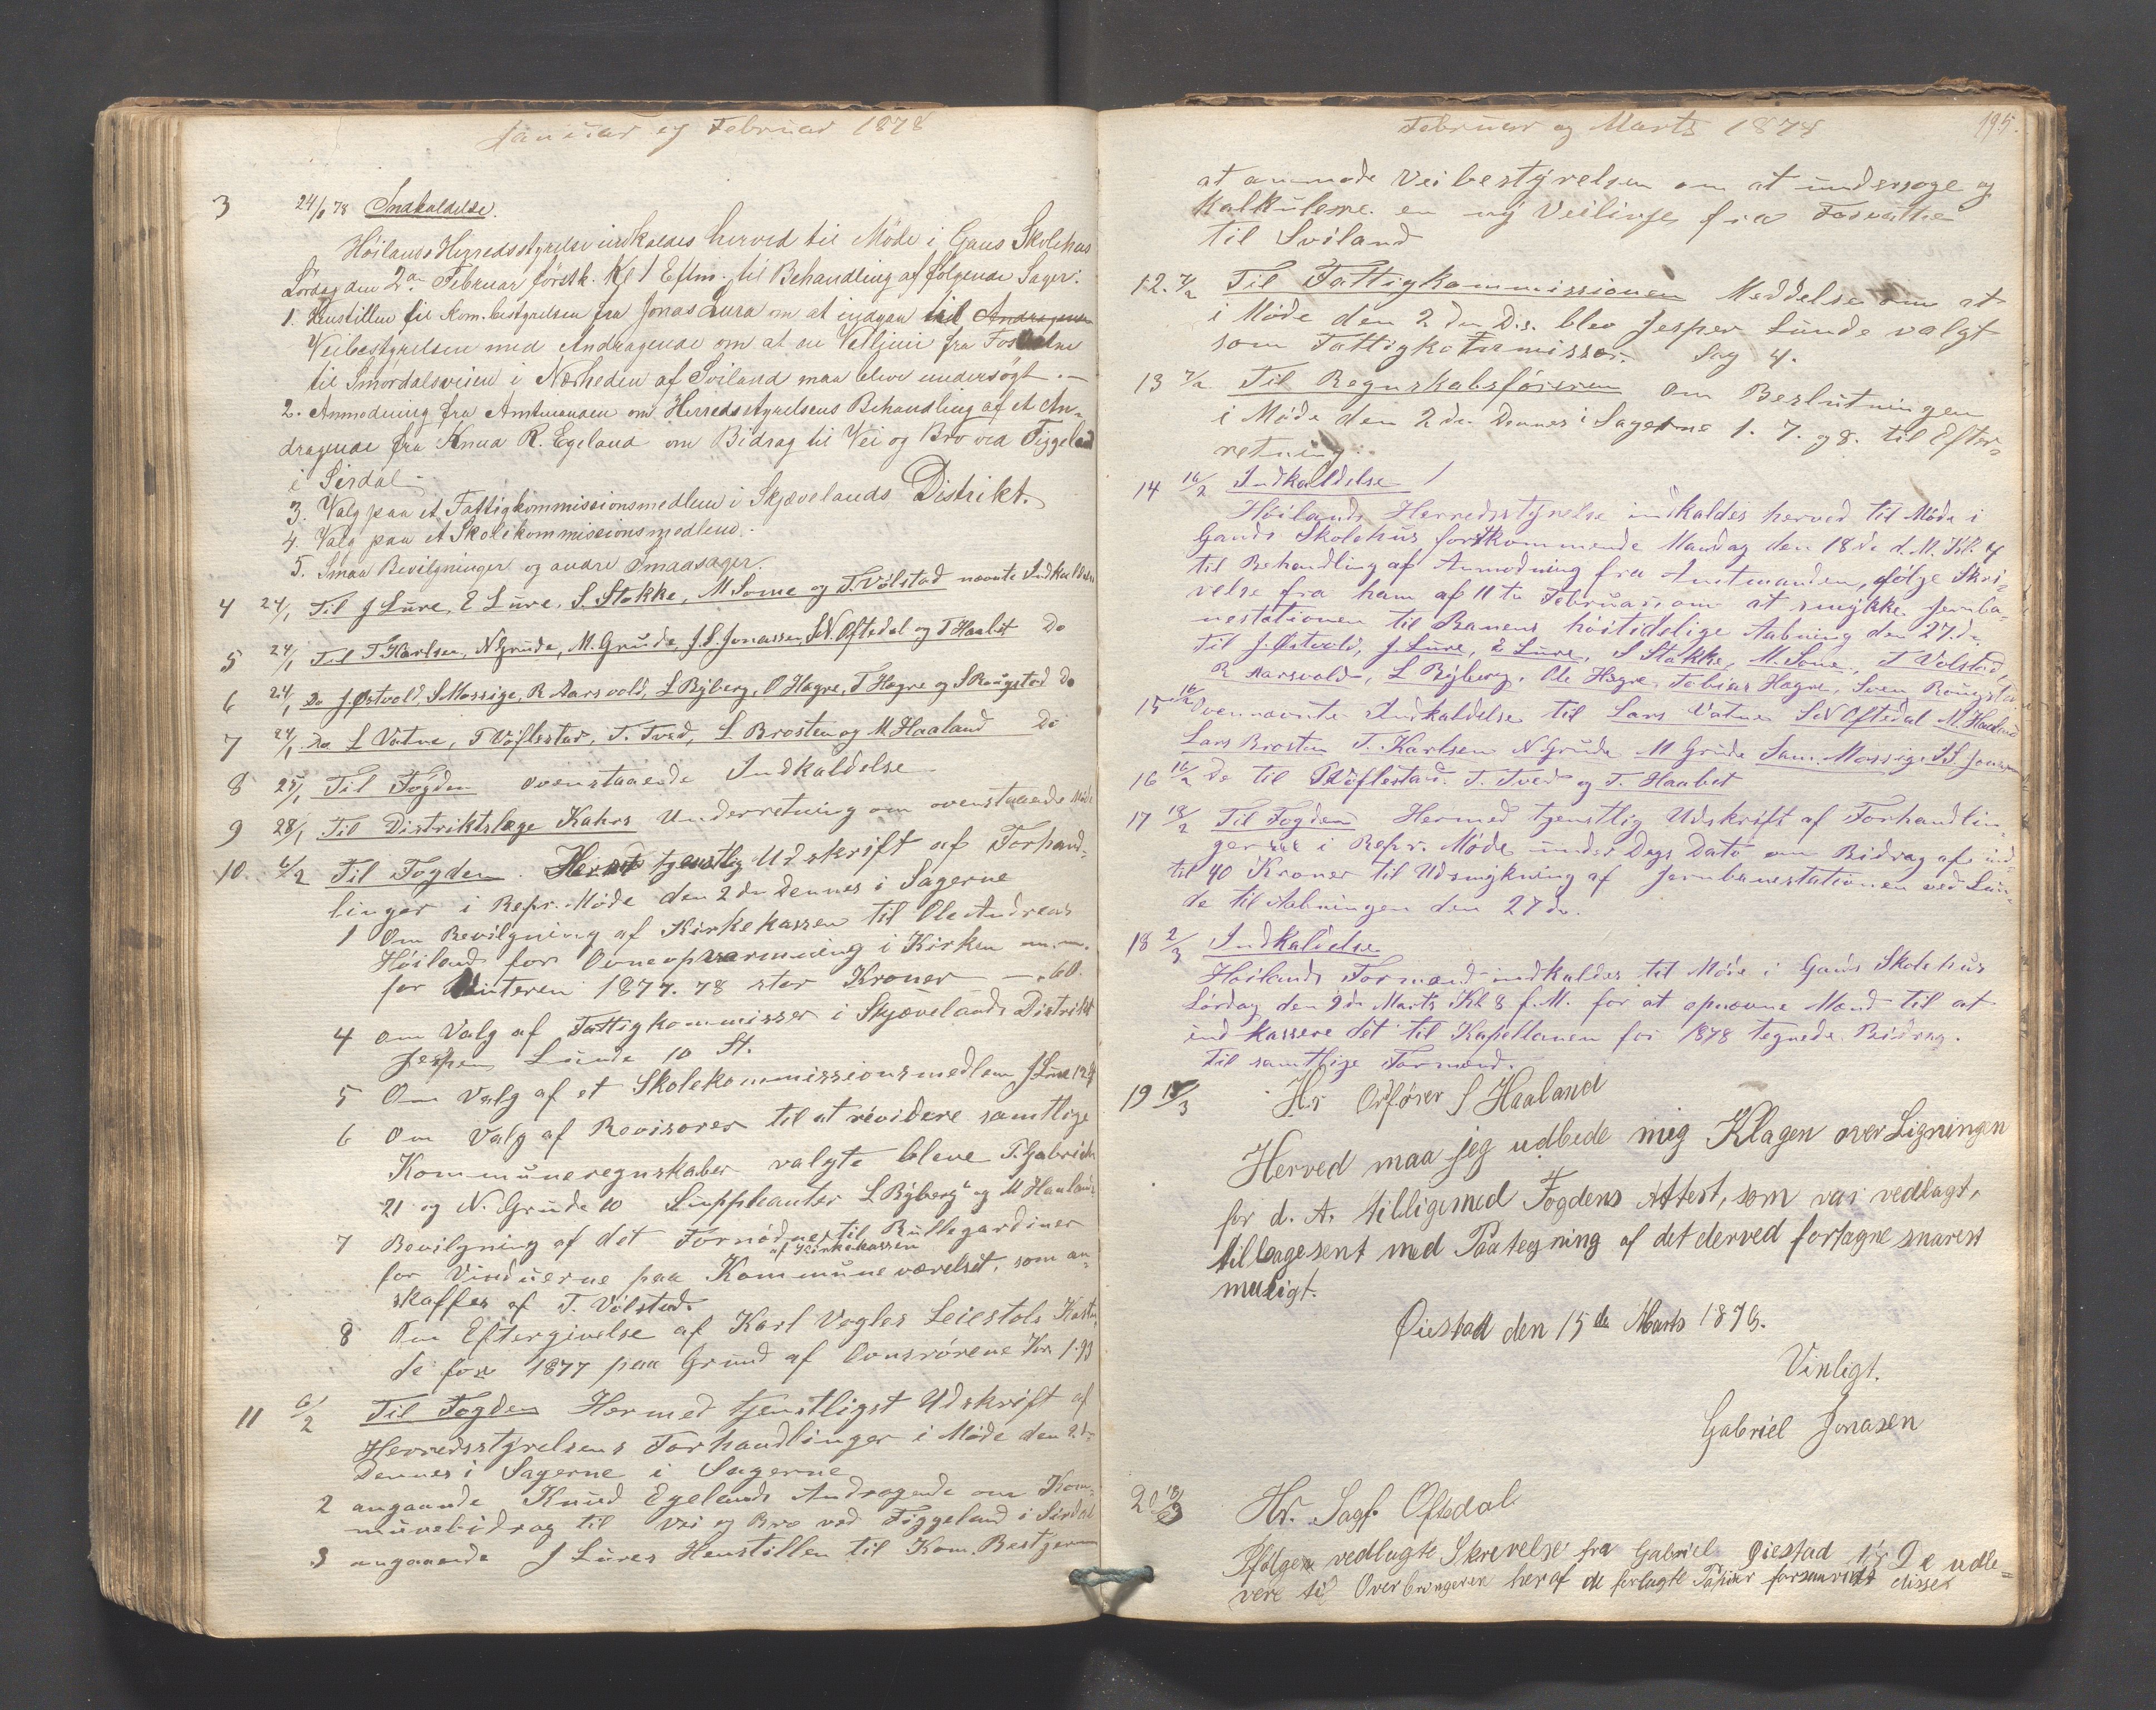 Januar og Februar 1878
3 24/1 78 Indkaldelse.
Höilands Herredsstyrelse indkaldes herved til Möde i Gans Skolehus
Lördag den 2den Februar förstk. Kl 1 Eftm. til Behandling af fölgende Sager:
1. Henstillen til Kom.bestyrelsen fra Jonas Lura om at indgaa til Andragende
Veibestyrelsen med Andragende om at en Veilinie fra Fosvatne
til Smördalsveien i Nærheden af Sviland maa blive undersögt. —
2. Anmodning fra Amtmanden om Herredsstyrelsens Behandling af et An-
dragende fra Knud R. Egeland om Bidrag til Vei og Bro ved Figgeland
i Sirdal
3. Valg paa et Fattigkommissionsmedlem i Skjævelands Distrikt.
4. Valg paa et Skolekommissionsmedlem.
5. Smaa Bevilgninger og andre Smaasager.
4 24/1 Til J Lure, E Lure, S. Stokke, M Some og T. Völstad nævnte Indkaldelse
5 24/1 Til T Karlsen, N Grude, M. Grude, J. S. Jonassen, S N. Oftedal og T Haabet Do
6 24/1 Do J. Østvold, S Mossige, R Aarsvold, L Ryberg, O Hagre, T Hogre og S Rougstad Do
7 24/1 Do L Vatne, T Vöflestad, T. Tved, L Brosten og M Haaland Do
8 25/1 Til Fogden ovenstaaende Indkaldelse
9 28/1 Til Distriktslæge Kahrs Underretning om ovenstaaende Möde
10. 6/2 Til Fogden. Herved tjenstlig Udskrift af Forhand-
linger i Repr. Möde den 2den Dennes i Sagerne
1 Om Bevilgning af Kirkekassen til Ole Andreas
Höiland for Ovneopvarmning i Kirken m.m.
for Vinteren 1877.78 stor Kroner — „60.
4 om Valg af Fattigkommisser i Skjævelands Distrikt
Jesper Lunde 10 St.
5 Om Valg af et Skolekommissionsmedlem J Lure 12 St
6 Om Valg af Revisorer til at revidere samtlige
Kommuneregnskaber valgte bleve T. Gabriels
21 og N. Grude 10 Supplianter L Ryberg og M Haaland
7 Bevilgning af det Fornödne til Rullegardiner
af Kirkekassen
for Vinduerne paa Kommuneværelset, som an-
skaffes af T. Völstad.
8 Om Eftergivelse af Karl Vogles Leiestols
de for 1877 paa Grund af Kr. 1.93
11 6/2 Til Fogden Hermed tjenstligst Udskrift af
Herredsstyrelsens Forhandlinger i Möde den 2de
Dennes i Sagerne i Sagerne
2 angaaende Knud Egelands Andragende om Kom-
munebidrag til Vei og Bro ved Figgeland i Sirdal
3 angaaende J Lures Henstillen til Kom. Bestyreren
Februar og Marts 1878
195.
at anmode Veibestyrelsen om at undersøge og
Kalkulere en ny Veilinje fra Fosvatne
til Sviland
12. 7/2 Til Fattigkommissionen Meddelse om at
i Möde den 2den Ds. blev Jesper Lunde valgt
som Fattigkommisser. Sag 4.
13 7/2 Til Regnskabsföreren om Beslutningen
i Möde den 2den Dennes i Sagerne 1. 7. og 8. til Efter-
retning.
14 16/2 Indkaldelse
Höilands Herredsstyrelse indkaldes herved til Möde i
Gands Skolehus förstkommende Mandag den 18de d. M. Kl. 4
til Behandling af Anmodning fra Amtmanden, ifölge Skri-
velse fra ham af 11te Februar, om at smykke Jernba-
nestationen til Banens höitidelige Aabning den 27de
Til J. Østvold, J. Lure, E Lure, S Stokke, M. Some, T Volstad,
R Aarsvold, L Ryberg, Ole Hogre, Tobias Hogre, Sven Rougstad
15 16/2 Ovennævnte Indkaldelse til Lars Vatne S N Oftedal M. Haaland
Lars Brosten T. Karlsen N Grude M Grude Sam. Mossige J S Jonassen
16 16/2 Do til T Vöflestad. T. Tved og T. Haabet
17 18/2 Til Fogden Hermed tjenstlig Udskrift af Forhandlin-
ger i Repr. Möde under Dags Dato om Bidrag af ind-
til 40 Kroner til Udsmykning af Jernbanestationen ved Lun-
de til Aabningen den 27de.
18 2/3 Indkaldelse
Höilands Formænd indkaldes til Möde i Gans Skolehus
Lördag den 9de Marts Kl 8 f.M. for at opnævne Mænd til at
ind kassere det til Kapellanen for 1878 tegnede Bidrag.
Til samtlige Formænd.
19 18/3 Hr Ordförer S Haaland
Herved maa jeg udbede mig Klagen over Ligningen
for d. A. tilligemed Fogdens Attest, som var vedlagt,
tilbagesent med Paategning af det derved fortagne snarest
muligt.
Øiestad den 15de Marts 1878.
Vinligt.
Gabriel Jonasen
20 18/3 Hr. Sagf. Oftedal
Ifölge vedlagte Skrevelse fra Gabriel Øiestad bör De udle-
vere til Overbringeren heraf de forlagte Papirer forsaavidt disse